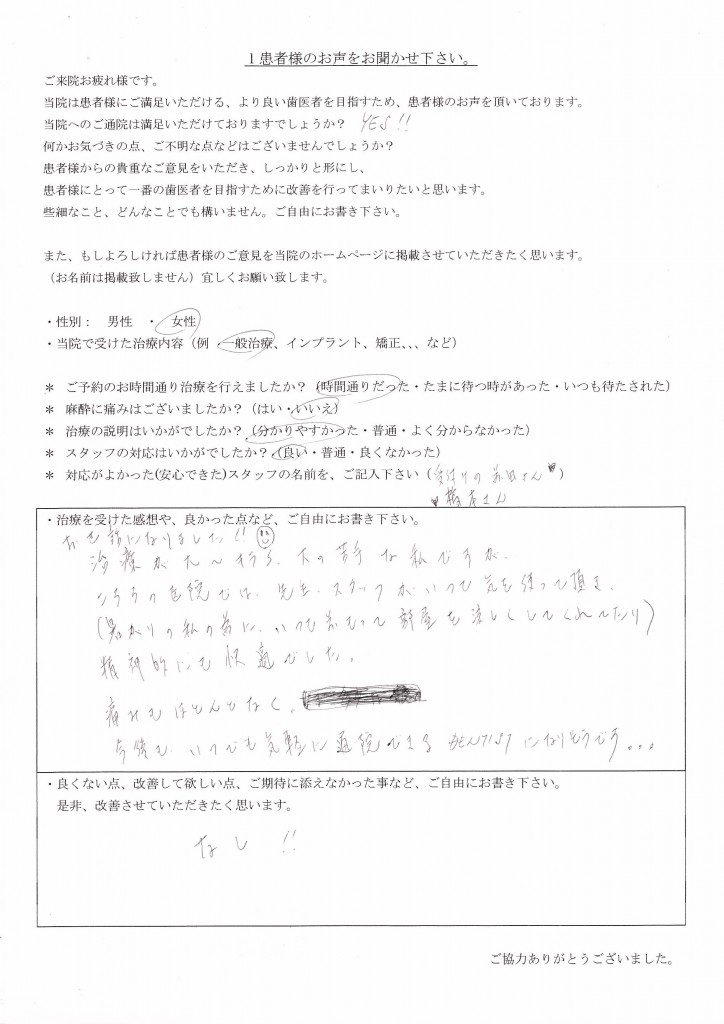 １患者様のお声をお聞かせ下さい。
ご来院お疲れ様です。
当院は患者様にご満足いただける、より良い歯医者を目指すため、患者様のお声を頂いております。
当院へのご通院は満足いただけておりますでしょうか？ YES!!
何かお気づきの点、ご不明な点などはございませんでしょうか？
患者様からの貴重なご意見をいただき、しっかりと形にし、
患者様にとって一番の歯医者を目指すために改善を行ってまいりたいと思います。
些細なこと、どんなことでも構いません。ご自由にお書き下さい。
また、もしよろしければ患者様のご意見を当院のホームページに掲載させていただきたく思います。
（お名前は掲載致しません）宜しくお願い致します。
・性別： 男性 ・ 女性
・当院で受けた治療内容（例・一般治療、インプラント、矯正、、、など）
＊ ご予約のお時間通り治療を行えましたか？（時間通りだった・たまに待つ時があった・いつも待たされた）
＊ 麻酔に痛みはございましたか？（はい・いいえ）
＊ 治療の説明はいかがでしたか？（分かりやすかった・普通・よく分からなかった）
＊ スタッフの対応はいかがでしたか？（良い・普通・良くなかった）
＊ 対応がよかった(安心できた)スタッフの名前を、ご記入下さい（受付けの さん♥）
♥ さん
・治療を受けた感想や、良かった点など、ご自由にお書き下さい。
お世話になりました!!
治療がた〜 、大の苦手な私ですが、
こちらの医院では、先生、スタッフがいつも気を使って頂き、
（暑がりの私の為に、いつも前もって部屋を涼しくしてくれてたり）
精神的にも快適でした。
痛みもほとんどなく、
今後も、いつでも気軽に通院できるDENTISTになりそうです...
・良くない点、改善して欲しい点、ご期待に添えなかった事など、ご自由にお書き下さい。
是非、改善させていただきたく思います。
なし !!
ご協力ありがとうございました。